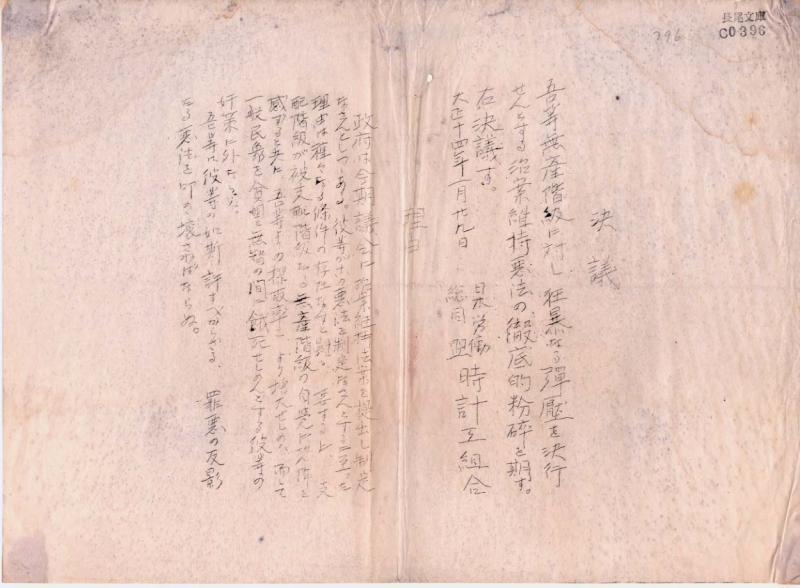 長尾文庫
C0396
296
決議
吾等無産階級に対し狂暴なる弾壓を決行
せんとする治案維持悪法の徹底的粉砕を期す。
右決議す。
大正十四年一月廿九日 日本労働総同盟 時計工組合
理由
政府は今期議会に治案維持法案を提出し制定
なさんとしつゝある。彼等がこの悪法を制定なさんとする
理由は種々なる条件の存在 要するに支
配階級が被支配階級なる無産階級の自覚に
感ずると共に吾等よりの搾取率 より増大せしめ、而して
一般民衆を貧困と無智の間に餓死せしめんとする彼等の
奸策に外ならぬ。
吾等は彼等の如斯許すべからざる、罪悪の反影
なる悪法を叩き壊さねばならぬ。